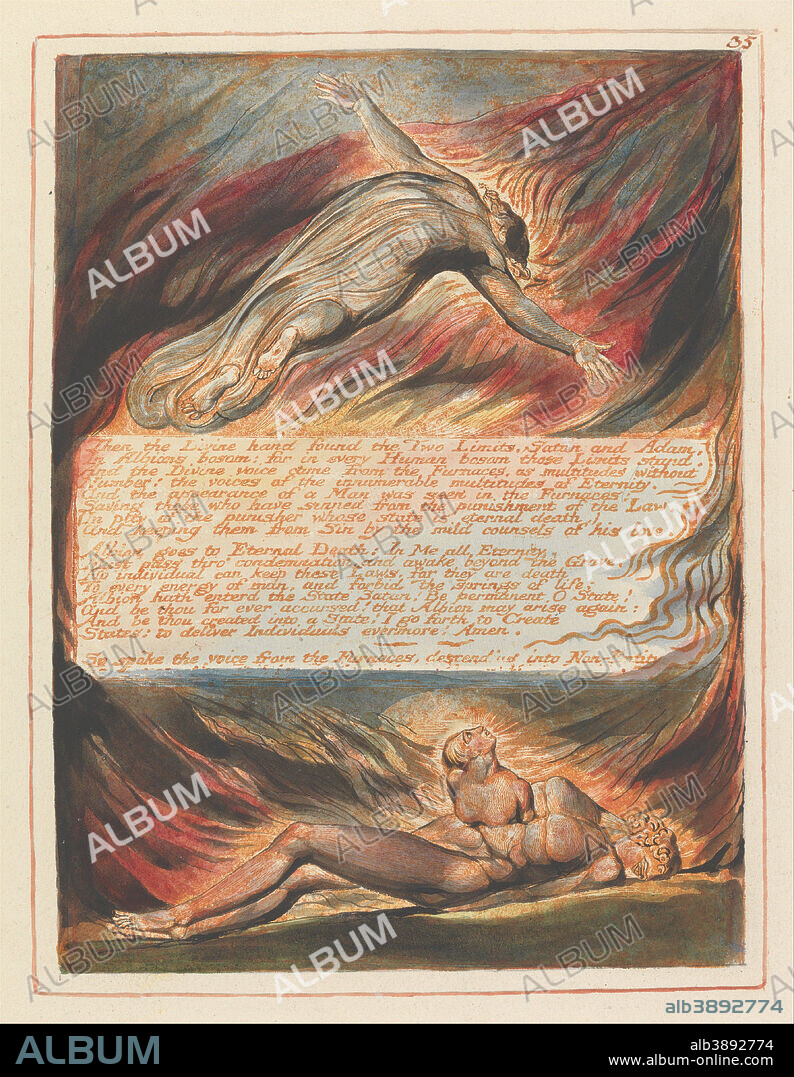 35
Then the Divine hand found the Two Limits, Satan and Adam,
In Albions bosom: for in every Human bosom those Limits stand.
And the Divine voice came from the Furnaces, as multitudes without
Number: the voices of the innumerable multitudes of Eternity.
And the appearance of a Man was seen in the Furnaces:
Saving those who have sinned from the punishment of the Law,
In pity of the punisher whose state is eternal death,
And keeping them from Sin by the mild counsels of his love.
Albion goes to Eternal Death: In Me all Eternity,
Must pass thro' condemnation, and awake beyond the Grave:
No individual can keep these Laws, for they are death
To every energy of man, and forbid the springs of life:
Albion hath enterd the State Satan! Be permanent O State!
And be thou for ever accursed! that Albion may arise again:
And be thou created into a State! I go forth to Create
States: to deliver Individuals evermore! Amen.
So spoke the voice from the Furnaces, descending into Non-Entity
ALBUM
alb3892774
ALBUM
alb3892774
www.album-online.com